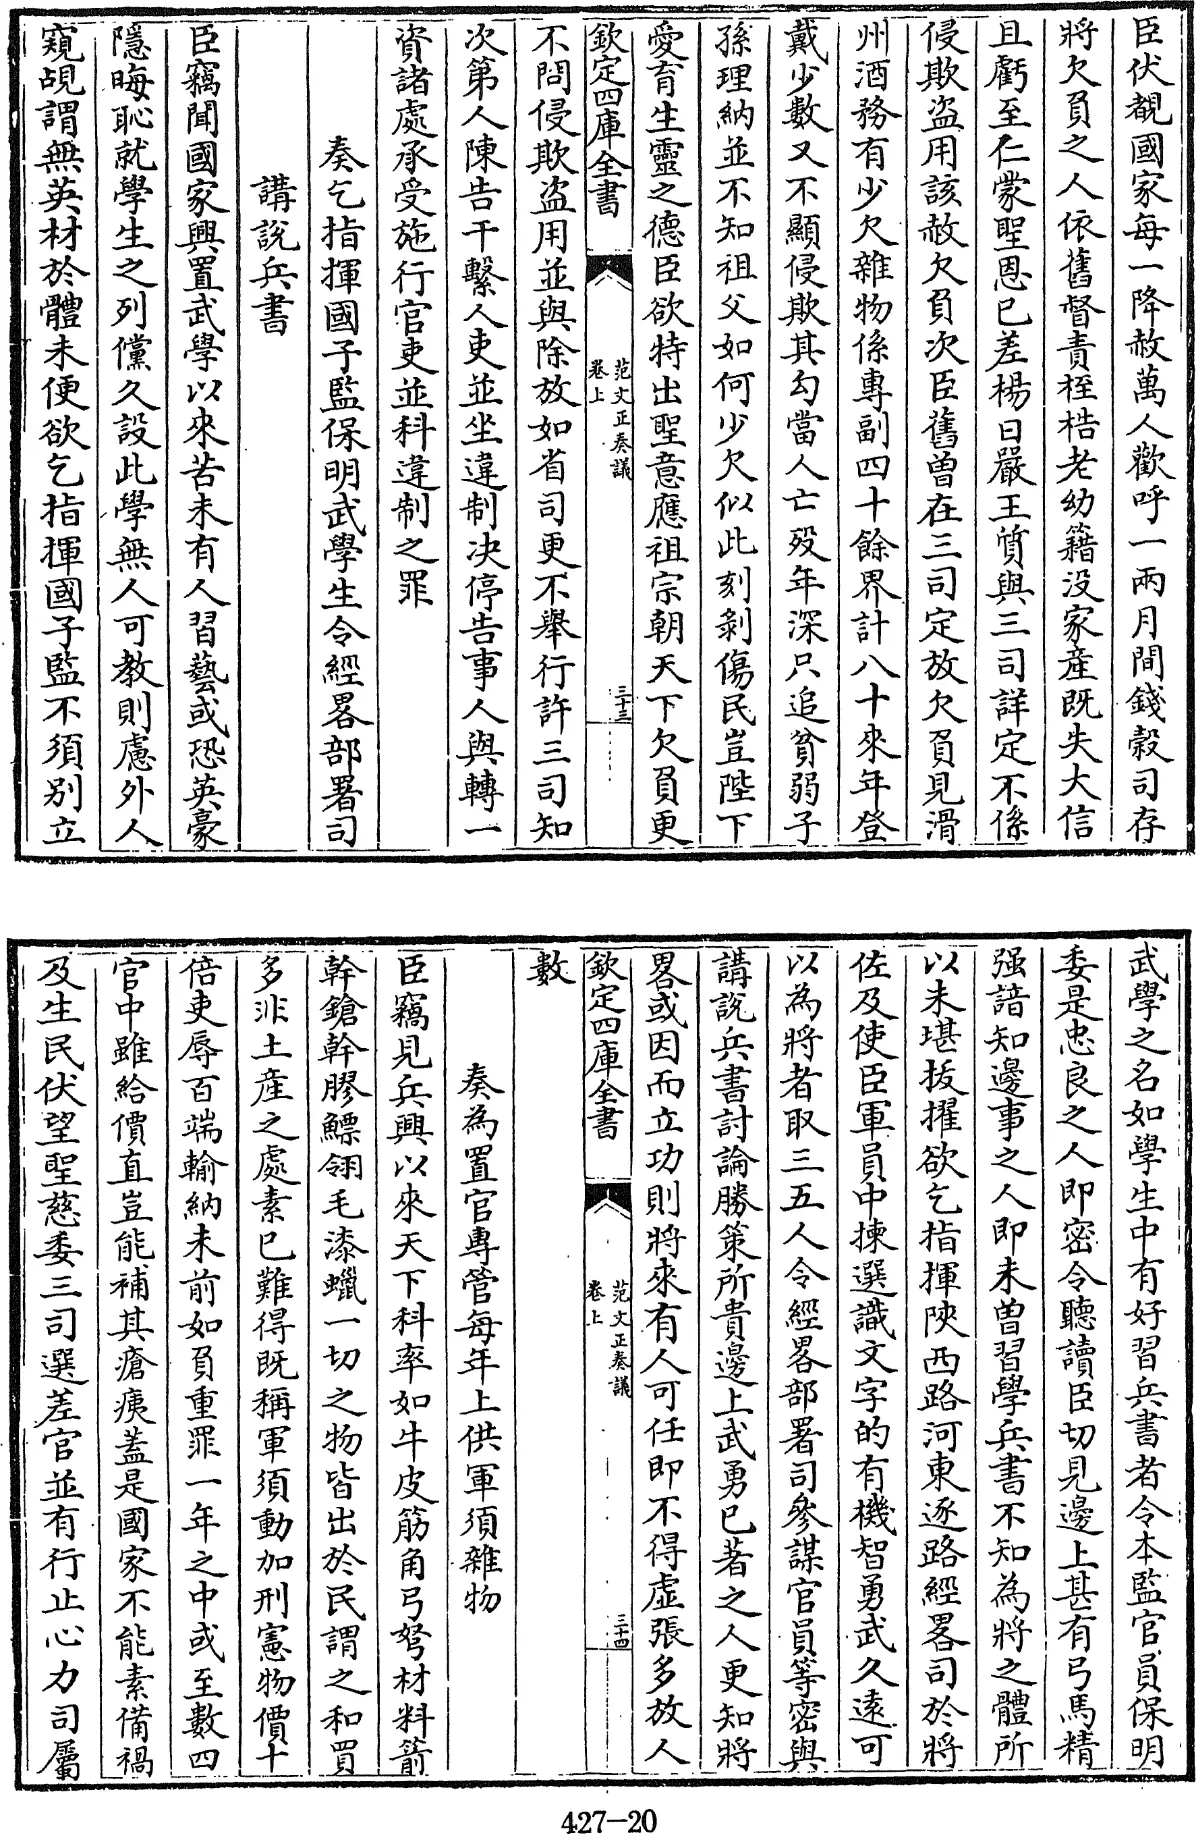 臣伏覩國家每一降赦萬人歡呼一兩月間錢穀司存
將欠負之人依舊督責桎梏老幼籍没家産既失大信
且虧至仁蒙聖恩已差楊日嚴王質與三司詳定不係
侵欺盗用該赦欠負次臣舊曾在三司定放欠負見滑
州酒務有少欠雜物係專副四十餘界計八十來年登
戴少數又不顯侵欺其勾當人亡殁年深只追貧弱子
孫理納並不知祖父如何少欠似此刻剥傷民豈陛下
愛育生靈之德臣欲特出聖意應祖宗朝天下欠負更
欽定四庫全書
范文正奏議
卷上
三十三
不問侵欺盗用並與除放如省司更不舉行許三司知
次第人陳告干繫人吏並坐違制决停告事人與轉一
資諸處承受施行官吏並科違制之罪
奏乞指揮國子監保明武學生令經畧部署司
講説兵書
臣竊聞國家興置武學以來苦未有人習藝或恐英豪
隱晦恥就學生之列儻久設此學無人可教則慮外人
窺覘謂無英材於體未便欲乞指揮國子監不須别立
武學之名如學生中有好習兵書者令本監官員保明
委是忠良之人即密令聽讀臣切見邊上甚有弓馬精
强諳知邊事之人即未曽習學兵書不知為將之體所
以未堪拔擢欲乞指揮陜西路河東逐路經畧司於將
佐及使臣軍員中揀選識文字的有機智勇武久遠可
以為將者取三五人令經畧部署司參謀官員等密與
講説兵書討論勝策所貴邊上武勇已著之人更知將
畧或因而立功則將來有人可任即不得虚張多放人
欽定四庫全書
范文正奏議
卷上
三十四
數
奏為置官專管每年上供軍須雜物
臣竊見兵興以來天下科率如牛皮筋角弓弩材料箭
幹鎗幹膠鰾翎毛漆蠟一切之物皆出於民謂之和買
多非土産之處素已難得既稱軍須動加刑憲物價十
倍吏辱百端輸納未前如負重罪一年之中或至數四
官中雖給價直豈能補其瘡痍蓋是國家不能素備禍
及生民伏望聖慈委三司選差官並有行止心力司屬
427—20